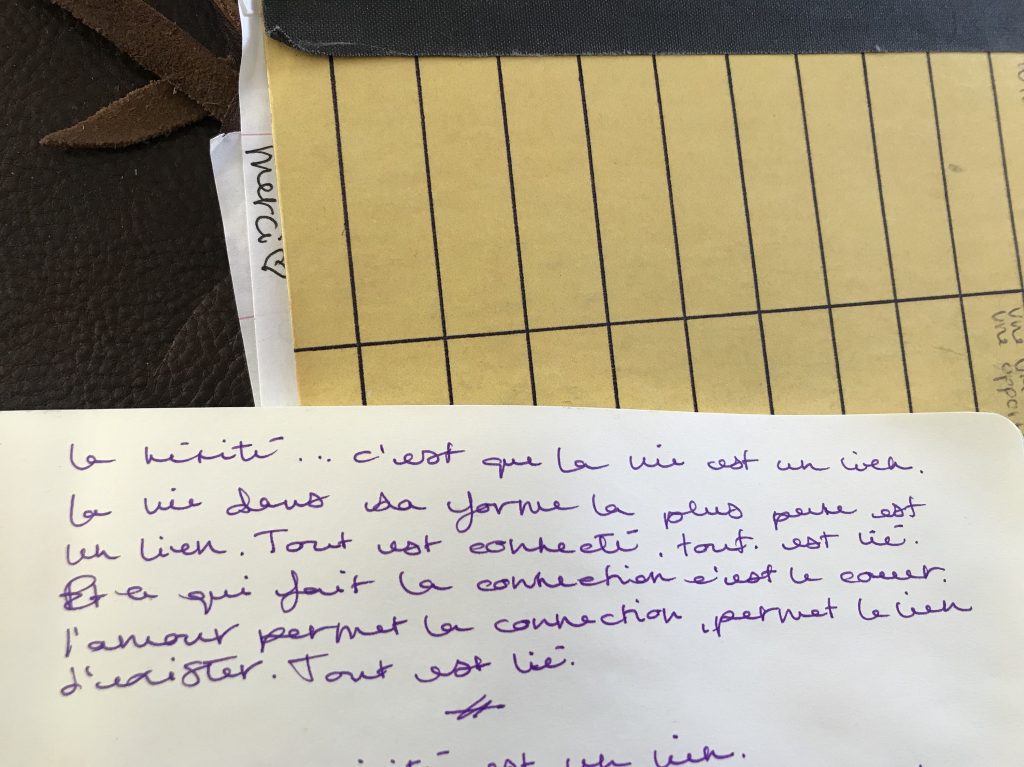 merci ♡
une
une
la vérité... c'est que la vie est un lien.
la vie dans sa forme la plus pure est
un lien. Tout est connecté. tout. est lié.
Et ce qui fait la connection c'est le coeur.
l'amour permet la connection, permet le lien
d'exister. Tout est lié.
est un lien.